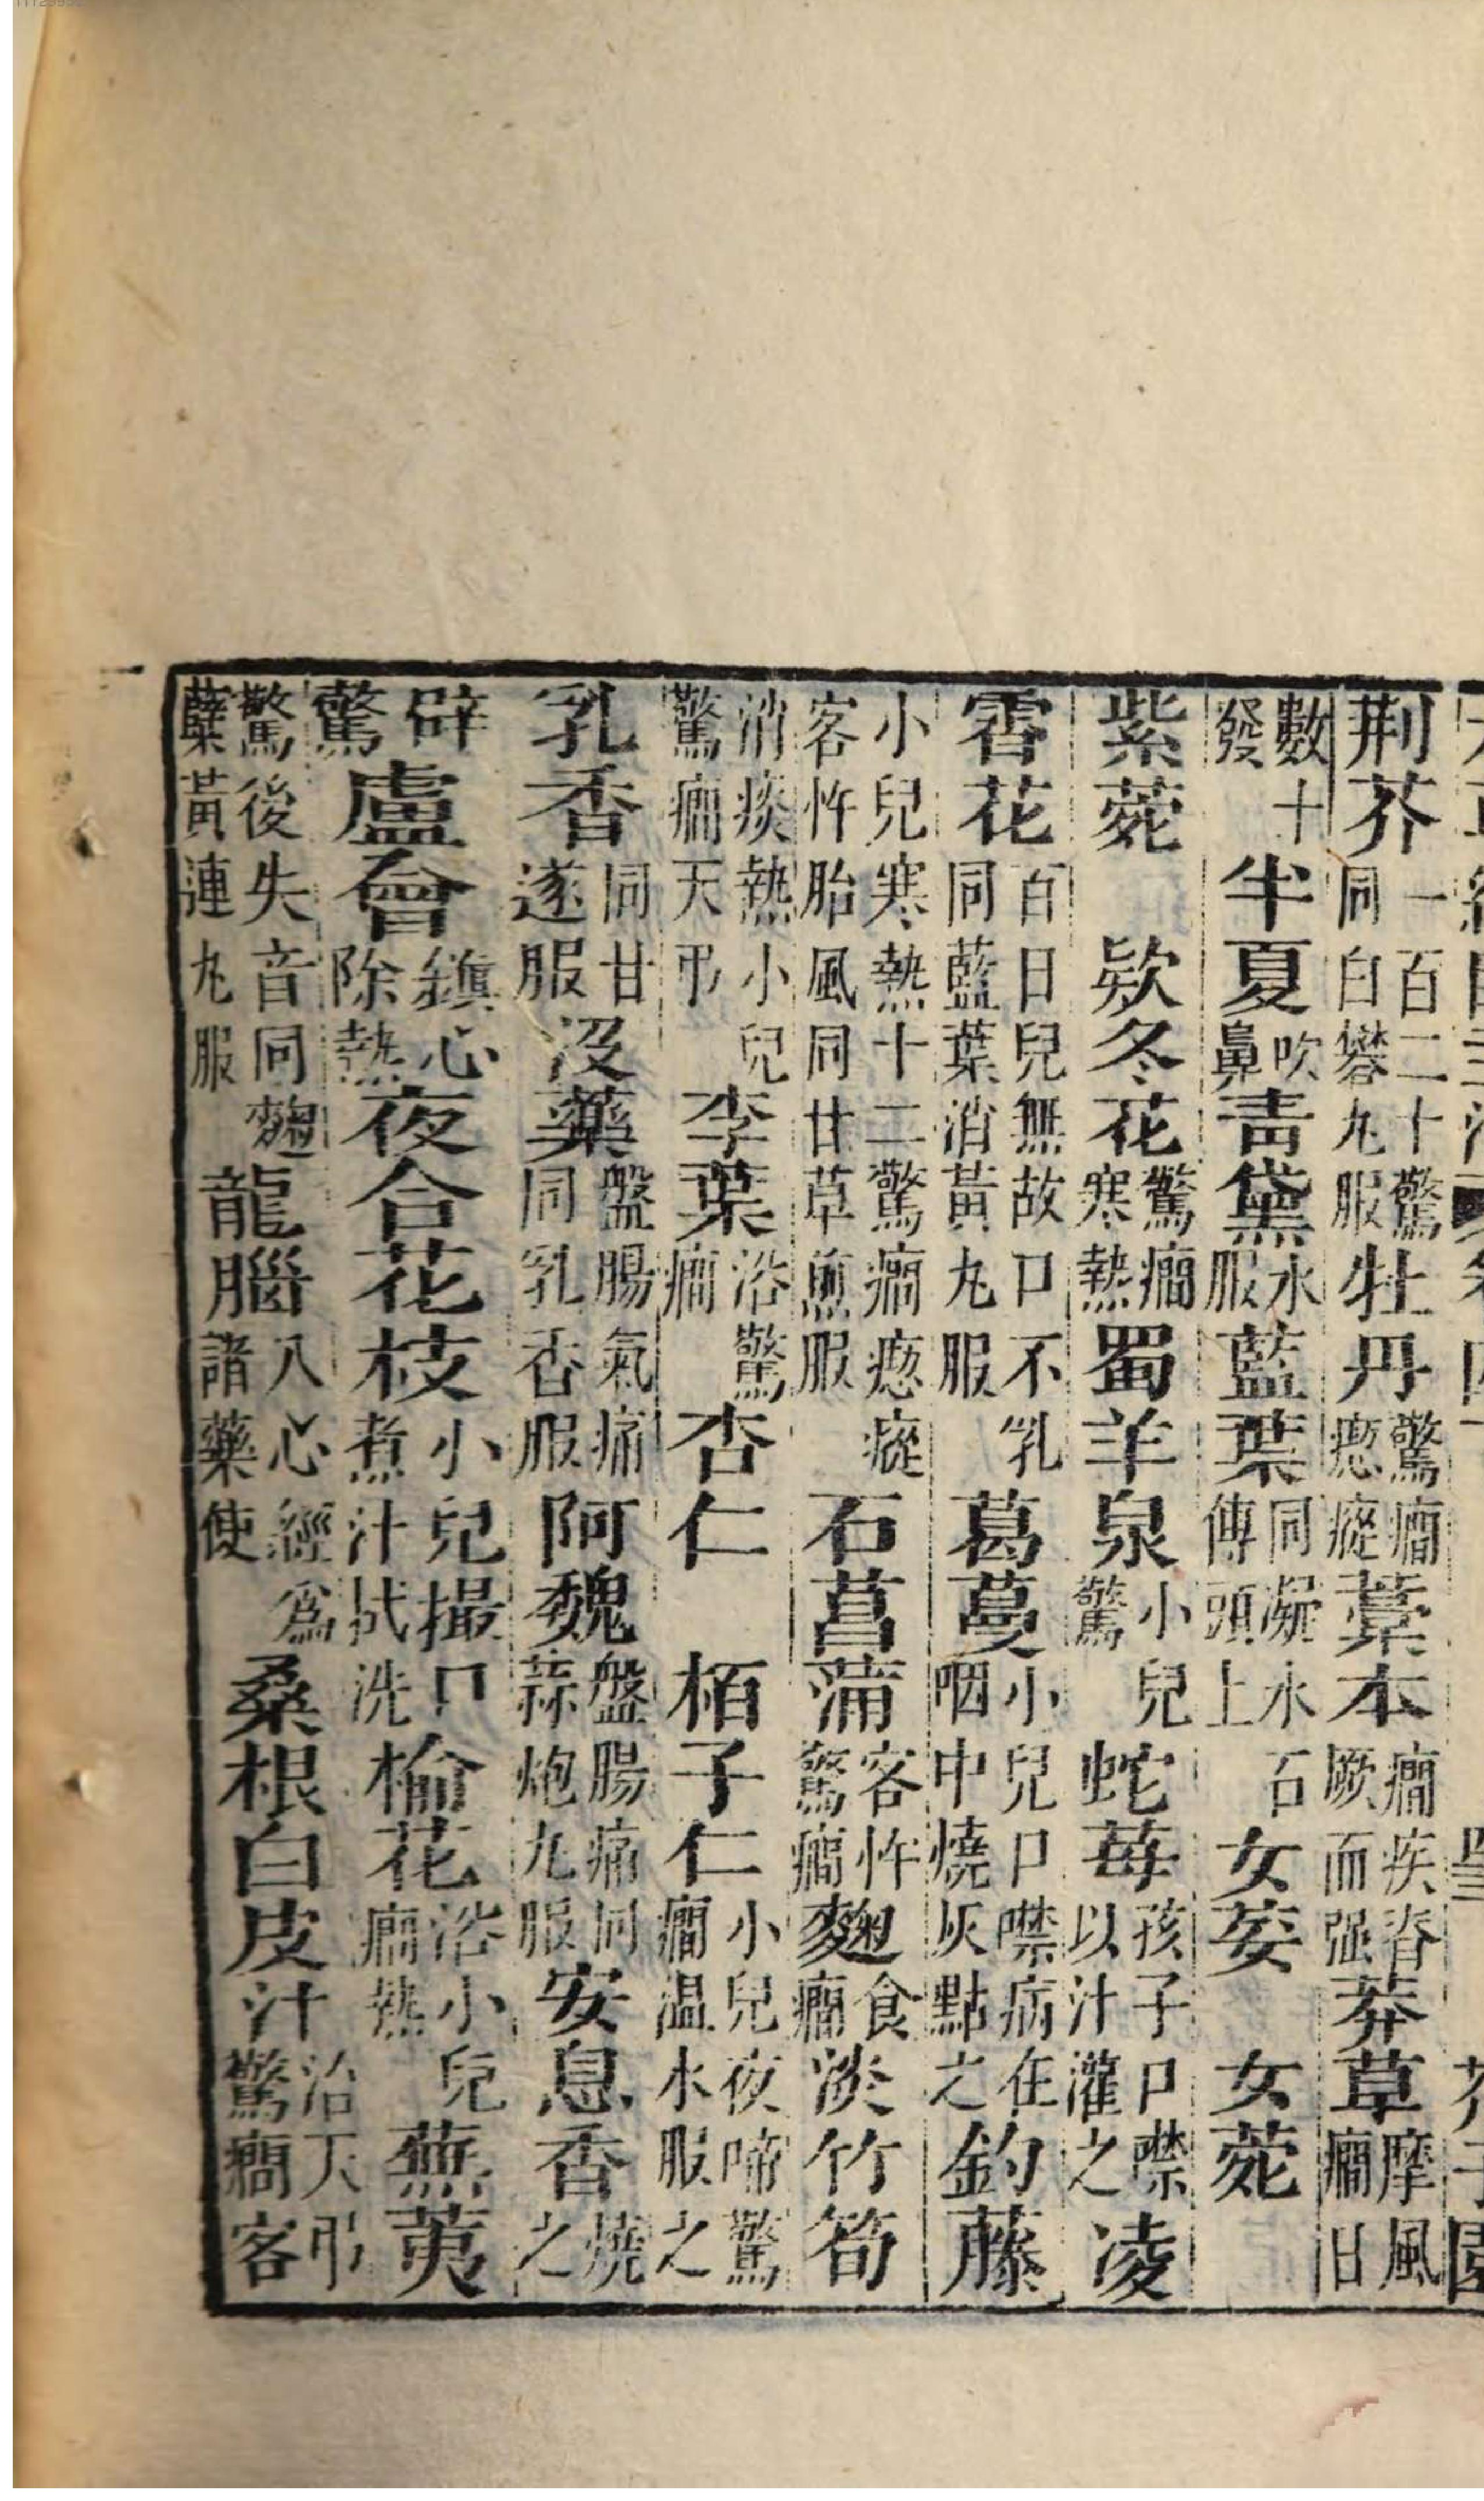 荊芥一百二十驚同白礬丸服牡丹驚癇瘛瘲藁本癇疾脊厥而强莽草摩風癇日
數十發半夏吹鼻青黛水服藍葉同凝水石傅頭上女萎女菀
紫菀欵冬花驚癇寒熱蜀羊泉小兒驚蛇莓孩子口噤以汁灌之凌
霄花百日兒無故口不乳同藍葉消黃丸服葛蔓小兒口噤病在咽中燒灰點之釣藤
小兒寒熱十二驚癇瘛瘲客忤胎風同甘草煎服石菖蒲客忤驚癇麴食癇淡竹筍
消痰熱小兒驚癇天弔李葉浴驚癇杏仁栢子仁小兒夜啼驚癇温水服之
乳香同甘遂服沒藥盤腸氣痛同乳香服阿魏盤腸痛同蒜炮丸服安息香燒之
辟驚盧會鎮心除熱夜合花枝小兒撮口煮汁拭洗榆花浴小兒癇熱蕪荑
驚後失音同麴蘗黃連丸服龍腦入心經爲諸藥使桑根白皮汁治天弔驚癇客